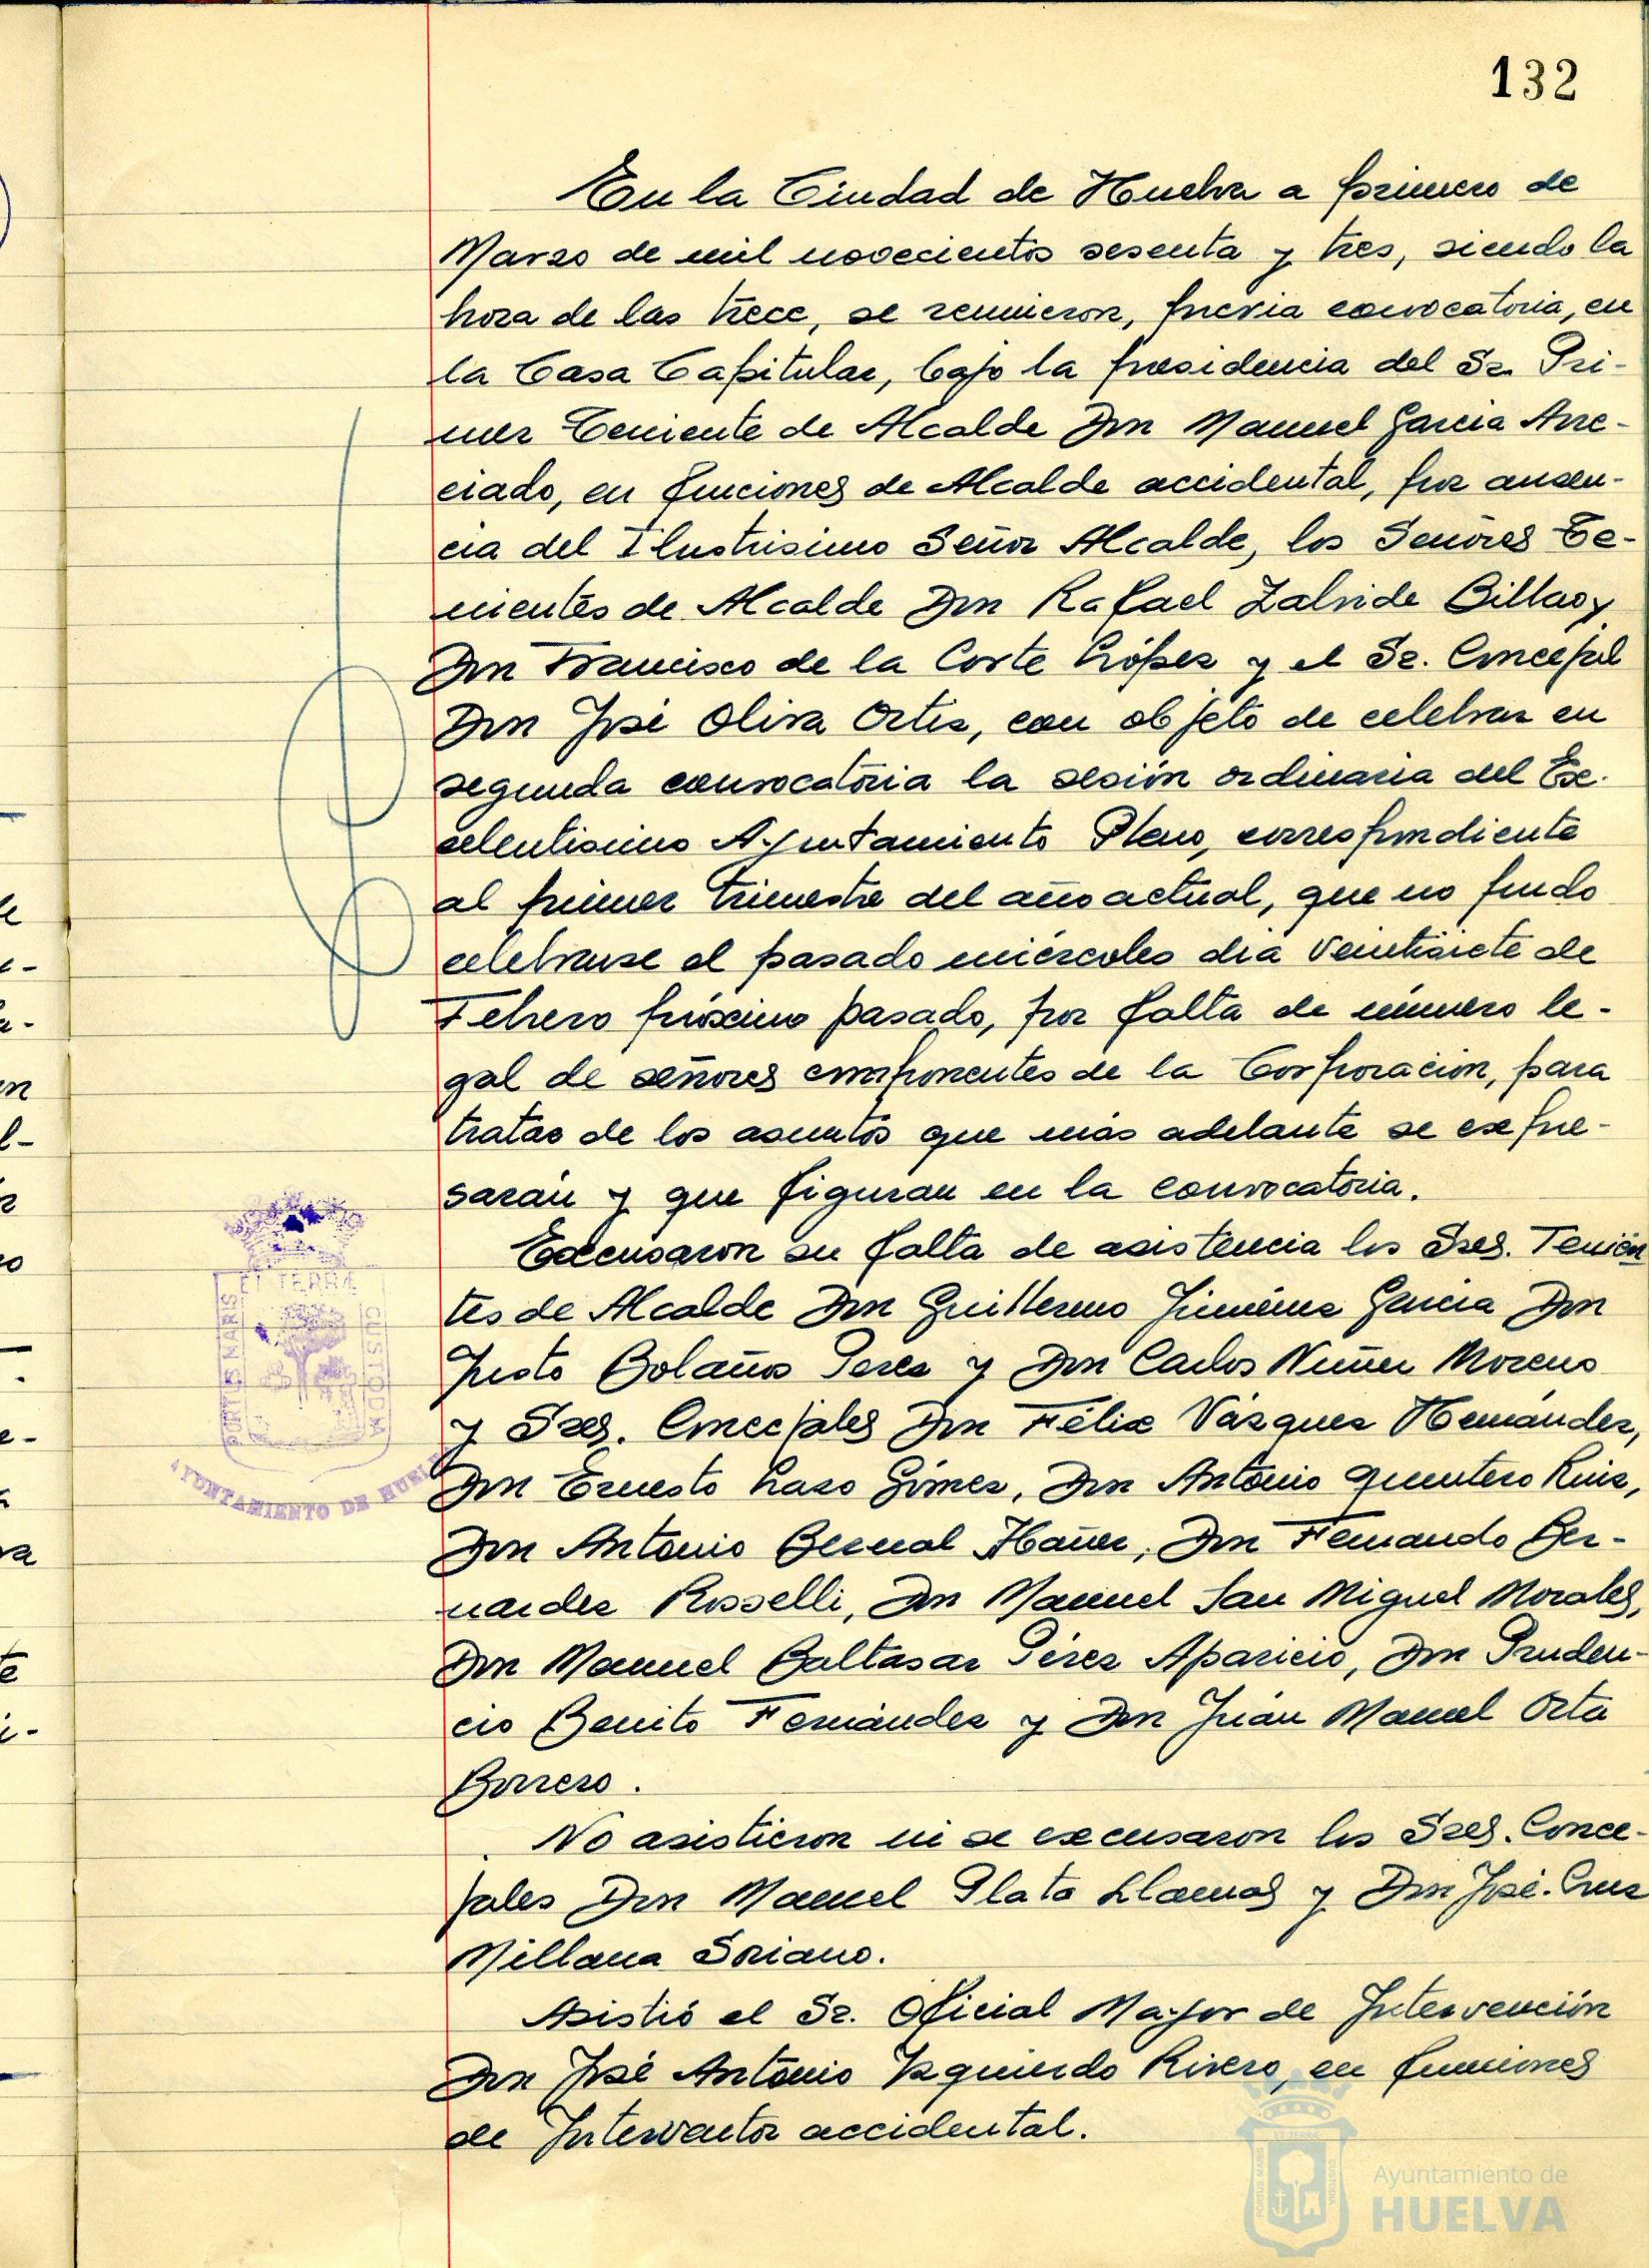 132
En la Ciudad de Huelva a primero de
Marzo de mil novecientos sesenta y tres, siendo la
hora de las trece, se reunieron, previa convocatoria, en
la Casa Capitular, bajo la presidencia del Sr. Pri-
mer Teniente de Alcalde Don Manuel Garcia Arre-
ciado, en funciones de Alcalde accidental, por ausen-
cia del Ilustrisimo Señor Alcalde, los Señores Te-
nientes de Alcalde Don Rafael Zalvide Bilbao y
Don Francisco de la Corte López y el Sr. Concejal
Don José Oliva Ortiz, con objeto de celebrar en
segunda convocatoria la sesión ordinaria del Ex-
celentisimo Ayuntamiento Pleno, correspondiente
al primer trimestre del año actual, que no pudo
celebrarse el pasado miércoles dia veintisiete de
Febrero próximo pasado, por falta de número le-
gal de señores componentes de la Corporación, para
tratar de los asuntos que más adelante se expre-
sarán y que figuran en la convocatoria.
Excusaron su falta de asistencia los Sres. Tenien
tes de Alcalde Don Guillermo Jiménez Garcia Don
Justo Bolaños Perez y Don Carlos Nuñez Moreno
y Sres. Concejales Don Félix Vázquez Hernández,
Don Ernesto Lazo Gómez, Don Antonio Quintero Ruiz,
Don Antonio Bernal Ibañez, Don Fernando Ber-
nardez Rosselli, Don Manuel San Miguel Morales,
Don Manuel Baltasar Pérez Aparicio, Don Pruden-
cio Benito Fernández y Don Juán Manuel Orta
Borrero.
No asistieron ni se excusaron los Sres. Conce-
jales Don Manuel Plata Llamas y Don José Cruz
Millana Soriano.
Asistió el Sr. Oficial Mayor de Intervención
Don José Antonio Izquierdo Rivero, en funciones
de Interventor accidental.
PORTUS MARIS ET TERRÆ CUSTODIA
AYUNTAMIENTO DE HUELVA
Ayuntamiento de
HUELVA